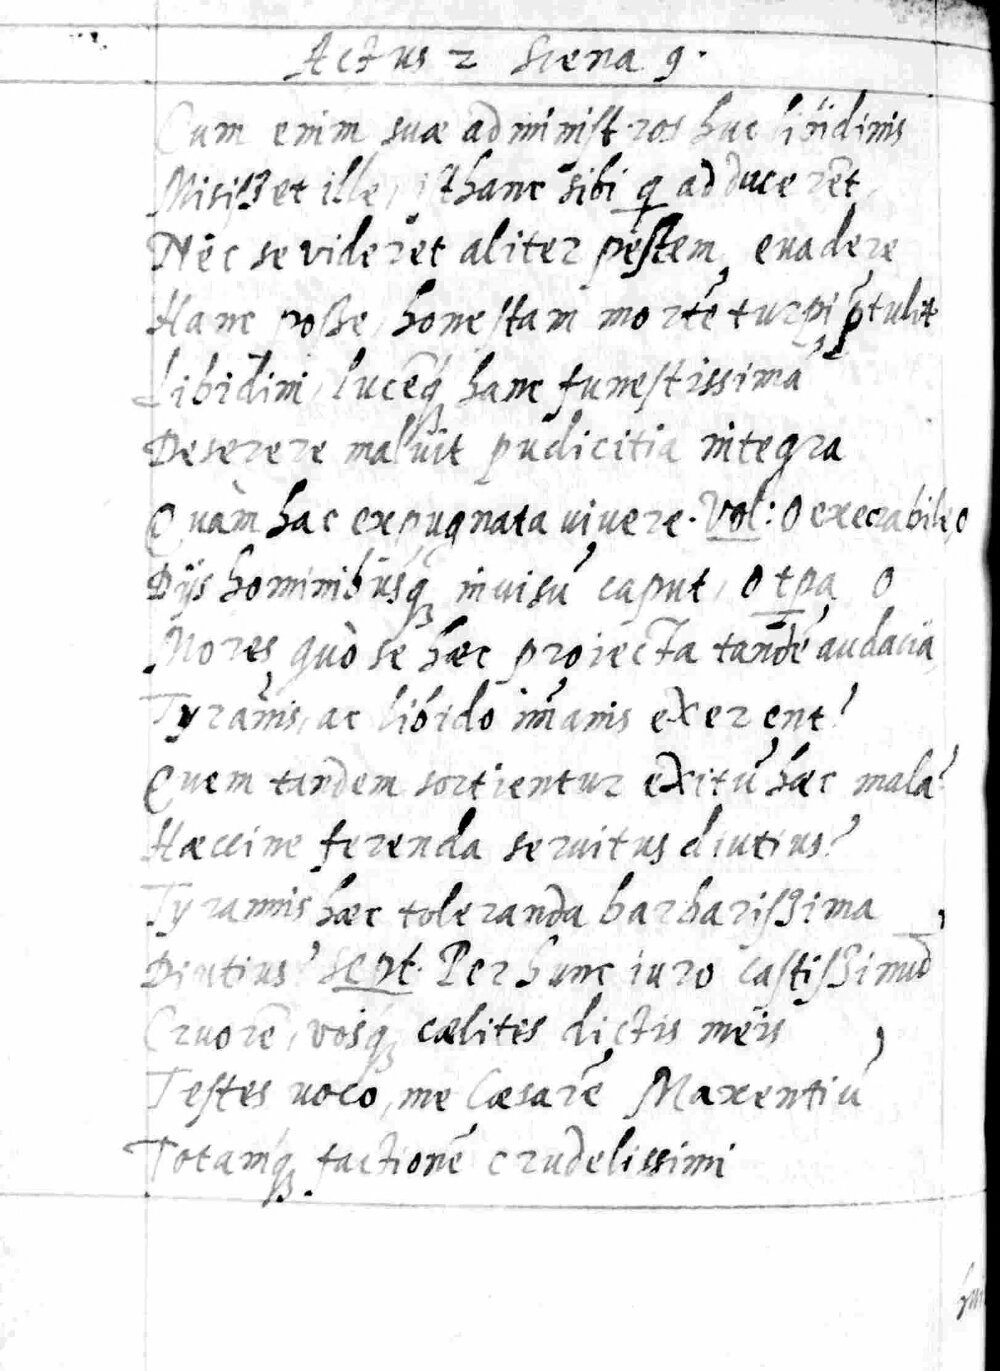 Actus 2 Scena 9.
Cum enim suæ administros huc libidinis
Misisset ille, isthanc sibi q̢ adducerēt,
Nec se videret aliter pestem, euadere
Hanc posse, honestam mortē turpi p̢tulit
Libidini, lucēq́ hanc funestissimā
Deserere maluit pudicitia integra
Quàm hac expugnata viuere. Vol: O execrabile, o
Dijs hominibusq́ inuisū caput, o tpa o
Mores, quò se hæc proiecta tandē audacia,
Tyrānis, ac libido imanis exerent?
Quem tandem sortientur exitū hæc mala?
Hæccine ferenda seruitus diutius?
Tyrannis hæc toleranda barbarissima
Diutius? Sept. Per hunc iuro castissimū
Cruorē, vosq́ cælites dictis meis
Testes voco, me Cæsarē Maxentiū
Totamq́ factionē crudelissimi